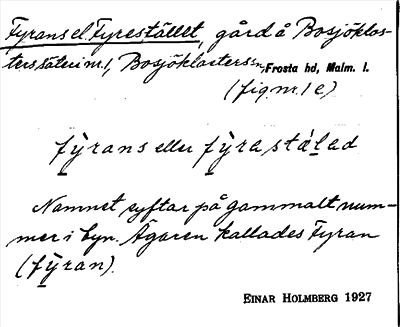 Fyrans el. Fyrestället, gård å Bosjöklos-
terssäteri nr. 1, Bosjöklosters sn, Frosta hd, Malm. l.
(fig. nr. 1 e)
fỳrans eller fỳra stálad
Namnet syftar på gammalt num-
mer i byn. Ägaren kallades Fyran
(fỳran).
EINAR HOLMBERG 1927